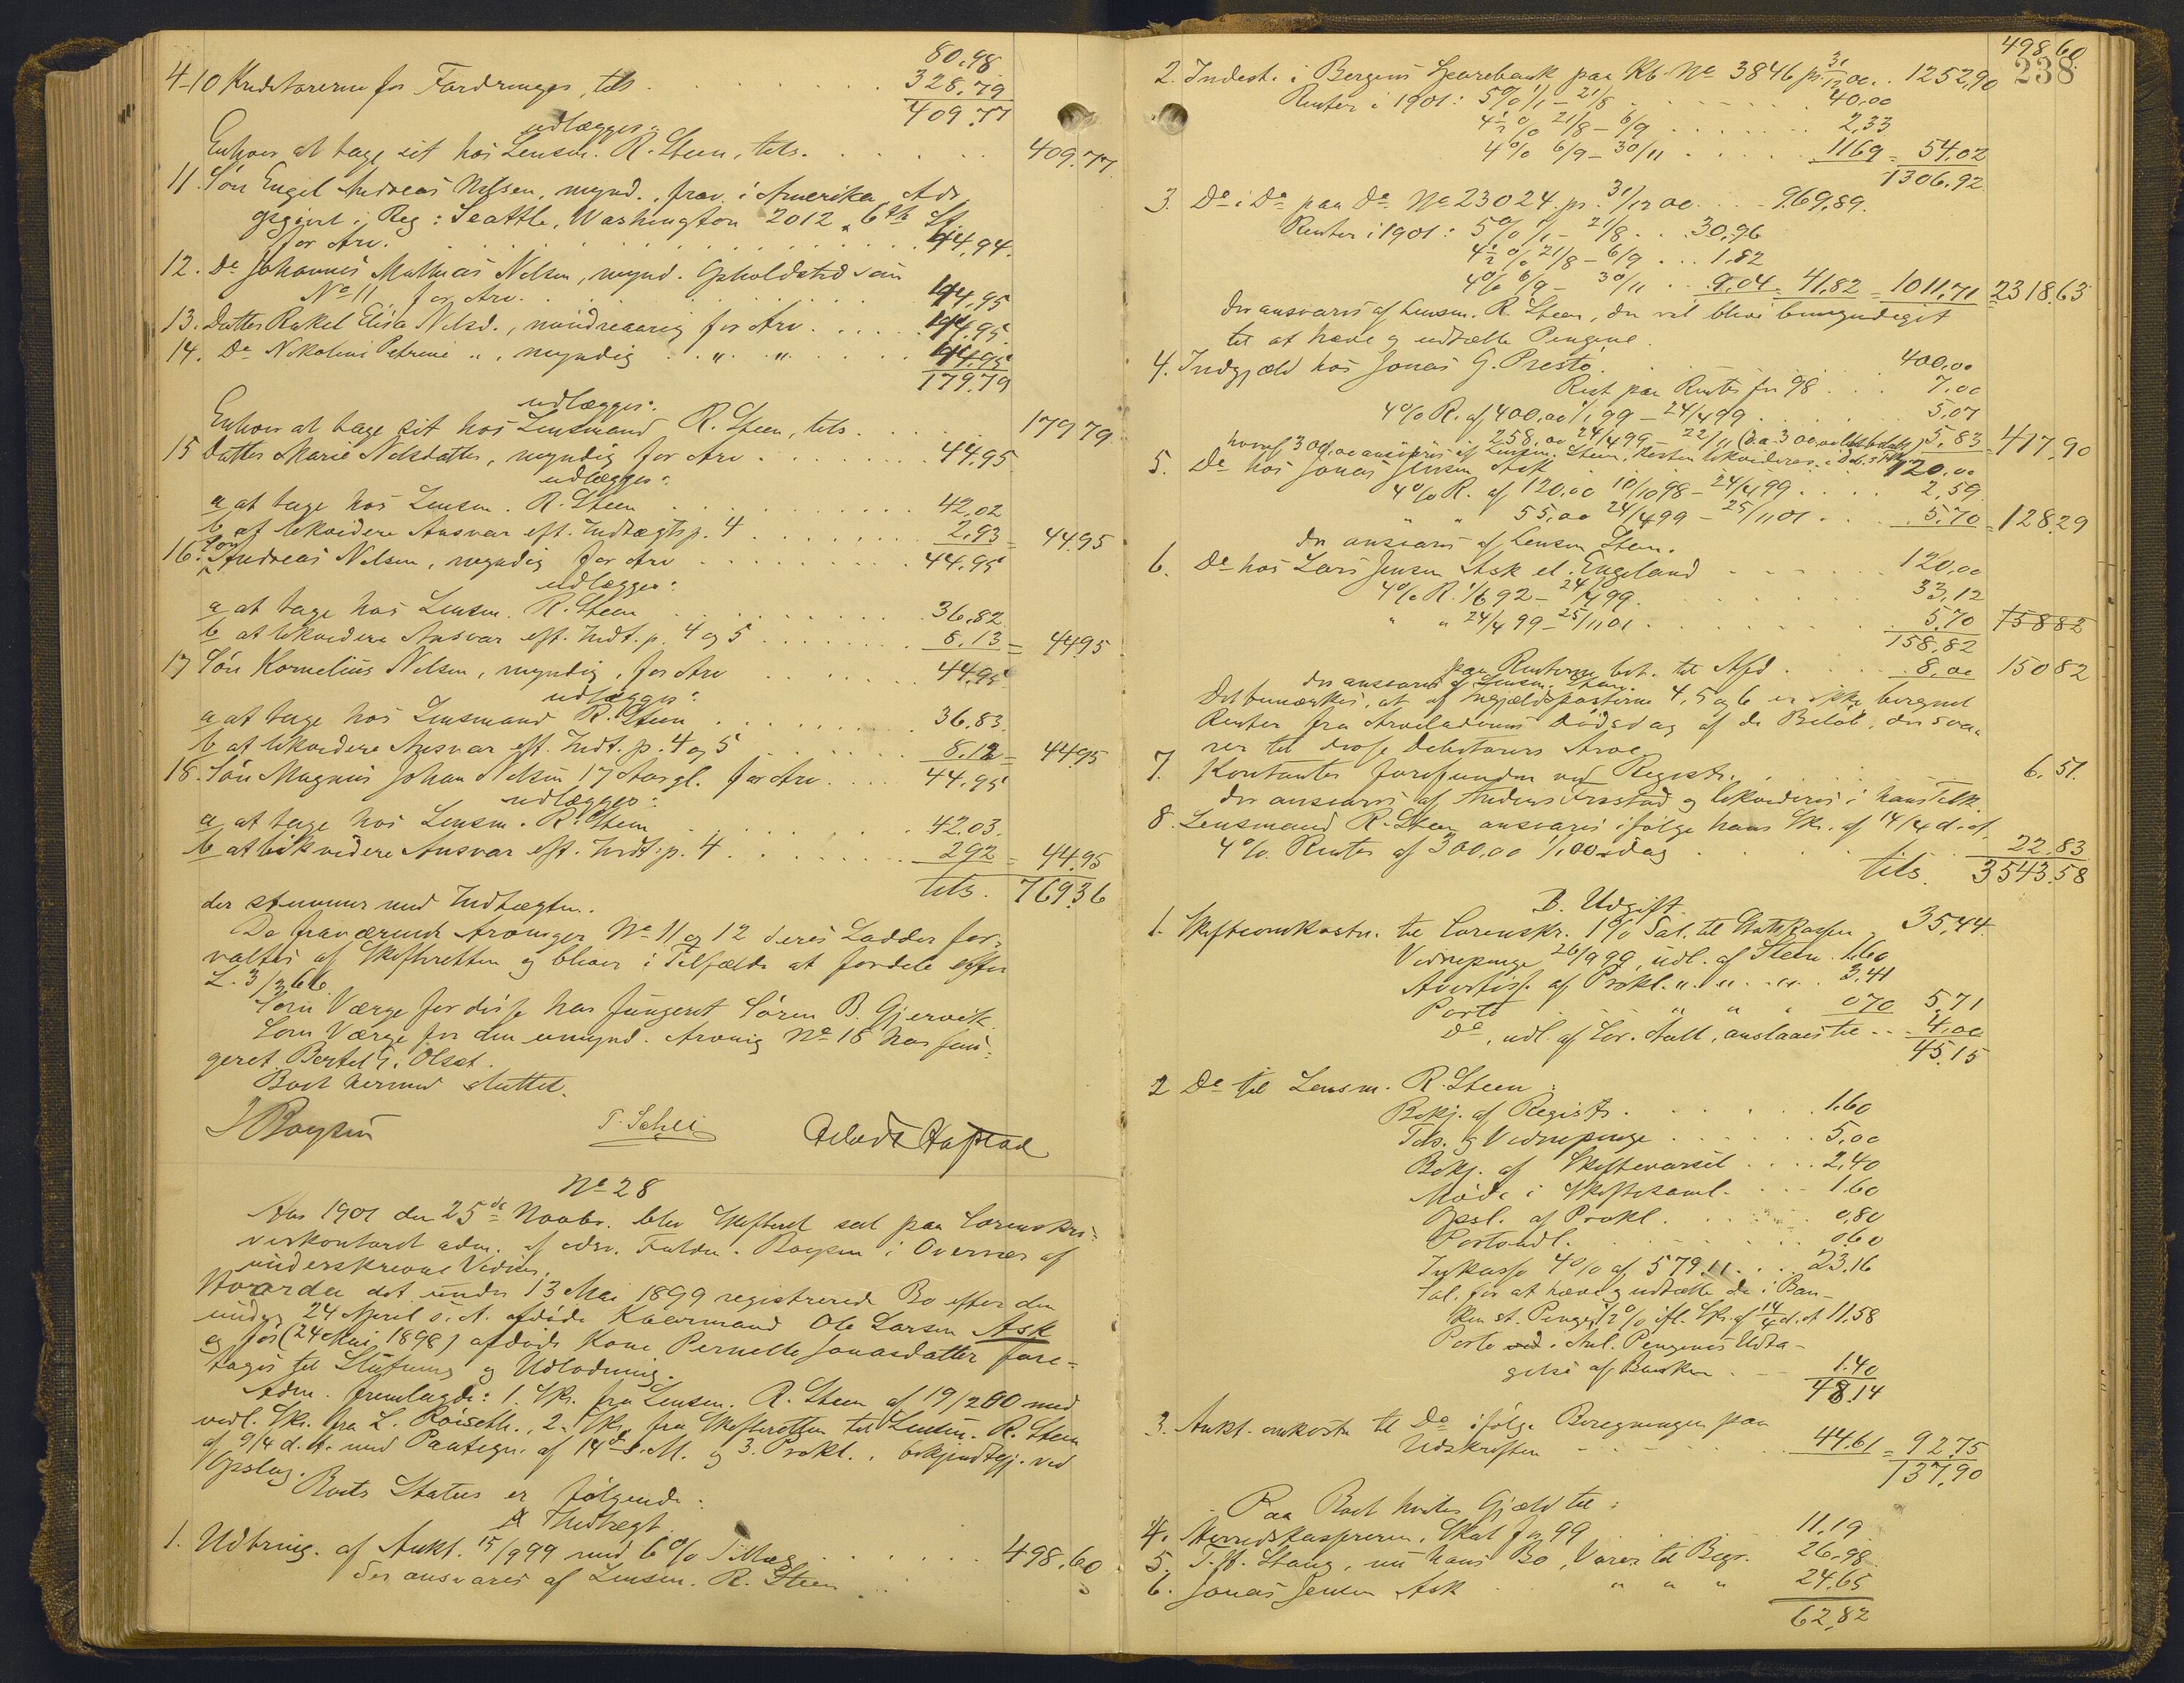 80,98
4-10 Kreditorerne for Fordringer, tils. 328,79
409.77
udlægges:
Enhver at tage sit hos Lensm. R. Steen, tils. 409.77.
11 Søn Engel Andreas Nilsen, mynd., frav. i Amerika, Adr.
opgivet i Reg: Seattle, Washington 2012. 6th St.
for Arv. 44,94.
12. Do Johannes Mathias Nilsen, mynd. Opholdsted som
No 11, for Arv. 44,95
13. Datter Rakel Elisa Nilsd., mindreaarig for Arv 44,95
14. Do Nikoline Petrine " , myndig " " 44,95
179,79
udlægges:
Enhver at tage sit hos Lensmand R. Steen, tils. 179 79
15 Datter Marie Nilsdatter, myndig for Arv 44,95
udlægges:
a at tage hos Lensm. R. Steen 42,02
b at likvidere Ansvar eft. Indtægtsp. 4 2,93 = 44,95
16. Søn Andreas Nilsen, myndig for Arv 44,95
udlægges:
a at tage hos Lensm. R. Steen 36,82
b at likvidere Ansvar eft. Indt. p. 4 og 5 8.13 = 44,95
17 Søn Kornelius Nilsen, myndig, for Arv 44,95
udlægges:
a at tage hos Lensmand R. Steen 36,83
b at likvidere Ansvar eft. Indt. p. 4 og 5 8.12 = 44,95
18. Søn Magnus Johan Nilsen 17 Aar gl. for Arv 44,95
udlægges:
a at tage hos Lensm. R. Steen 42.03.
b at likvidere Ansvar eft. Indt. p. 4 2,92 = 44,95
tils. 769,36
der stemmer med Indtægten.
De fraværende Arvinger No 11 og 12 deres Lodder for-
valtes af Skifteretten og bliver i Tilfælde at fordele efter
L. 3/3 66.
Som Værge for disse har fungeret Søren B. Gjervik
Som Værge for den umynd. Arving No 18 har fun-
geret Bertel Olset.
Boet hermed sluttet.
J Boysen T. Schei
No 28
Aar 1901 den 25de Novbr. blev Skifteret sat paa Sorenskri-
verkontoret adm. af edsv. Fuldm. Boysen i Overvær af
underskrevne Vidner.
Hvorda det under 13 Mai 1899 registrerede Bo efter den
under 24 April s. A. afdøde Kaarmand Ole Larsen Ask
og før (24 Mai 1898) afdøde Kone Pernelle Jonasdatter fore-
tages til Slutning og Udlodning.
Adm. fremlagde: 1. Skr. fra Lensm. R. Steen af 19/2 00 med
vedl. Skr. fra L. Røiseth., 2. Skr. fra Skifteretten til Lensm. R. Steen
af 9/4 d. A. med Paategn. af 14de s. M. og 3. Prokl. bekjendtgj. ved
Opslag.
Boets Status er følgende:
A Indtægt
1. Udbring. af Aukt. 15/9 99 med 6 % 498,60
der ansvares af Lensm. R. Steen
498,60
238
2. Indest. i Bergens Sparebank paa Kb. No 3846 pr. 31/12 00. 1252,90
Renter i 1901: 5% 1/1 - 21/8 40,00
4½ % 21/8 - 6/9 2,33
4% 6/9 - 30/11 11 69 = 54,02
1306,92.
3. Do i Do paa Do No 23024 pr. 31/12 00 969,89.
Renter i 1901: 5% 1/1 - 21/8 30,96
4½ % 21/8 - 6/9 1,82
4% 6/9 - 30/11 9,04 = 41,82 = 1011,71 = 2318,63
der ansvares af Lensm. R. Steen, der vil blive bemyndiget
til at hæve og udtælle Pengene.
4. Indgjæld hos Jonas G. Presto 400,00
Rest paa Renter for 98 7,00
4% R. af 400,00 1/1 99 - 24/4 99 5,07
258,00 24/4 99 - 22/11 5,83 = 417,90
hvoraf 300,00 ansvares af Lensm. Steen, Resten likvideres
5. Do hos Jonas Jensen Ask 120,00
4% R. af 120,00 10/10 98 - 24/4 99 2,59
" " 55,00 24/4 99 - 25/11 01 5,70 = 128,29
der ansvares af Lensm. Steen.
6. Do hos Lars Jensen Ask el. Engeland 120,00
4% R. 1/6 92 - 24/4 99. 33,12
" " 24/4 99 - 25/11 01 5,70 158 82
158,82
paa Renterne bet. til Afd. 8,00 150 82
der ansvares af Lensm. Steen.
Det bemærkes, at af Indgjældsposterne 4, 5 og 6 er ikke beregnet
Renter fra Arveladerens Dødsdag af de Beløb, der sva-
rer til disse Debitorers Arv.
7. Kontanter forefunden ved Registr. 6,51.
der ansvares af Anders Frestad og likvideres i hans Tilk.
8. Lensmand R. Steen ansvares ifølge hans Skr. af 14/4 d. A.
4%. Renter af 300,00 1/1 00 - idag 22,83
tils. 3543,58
B. Udgift.
1. Skifteomkostn. til Sorenskr. 1% Sal. til Statskassen 35,44.
Vidnepenge 26/9 99, udl. af Steen 1.60
Avertiss. af Prokl. " " " 3.41
Porto " " " 0 70 5,71
Do, udl. af Sor. , anslaaes til 4,00
45,15
2 Do til Lensm. R. Steen:
Bekj. af Registr. 1.60
Tils. og Vidnepenge 5,00
Bekj. af Skiftevarsel 2,40
Møde i Skiftesaml. 1.60
Opsl. af Prokl. 0,80
Portoudl. 0.60
Inkasso 4% af 579,11 23,16
Sal. for at hæve og udtælle de i Ban-
ken st. Penge, ½ % ifl. Skr. af 14/4 d. A. 11,58
Porto i Anl. Pengenes Udta-
gelse af Banken 1.40
48.14
3. Aukt. omkostn. til Do ifølge Beregningen paa
Udskriften 44,61 = 92 75
137,90
Paa Boet hviler Gjæld til:
4. Herredskassereren, Skat for 99 11.19
5. T. H. Stang, nu hans Bo, Varer til Begr. 26,98
6. Jonas Jensen Ask " " " 24,65
62,82